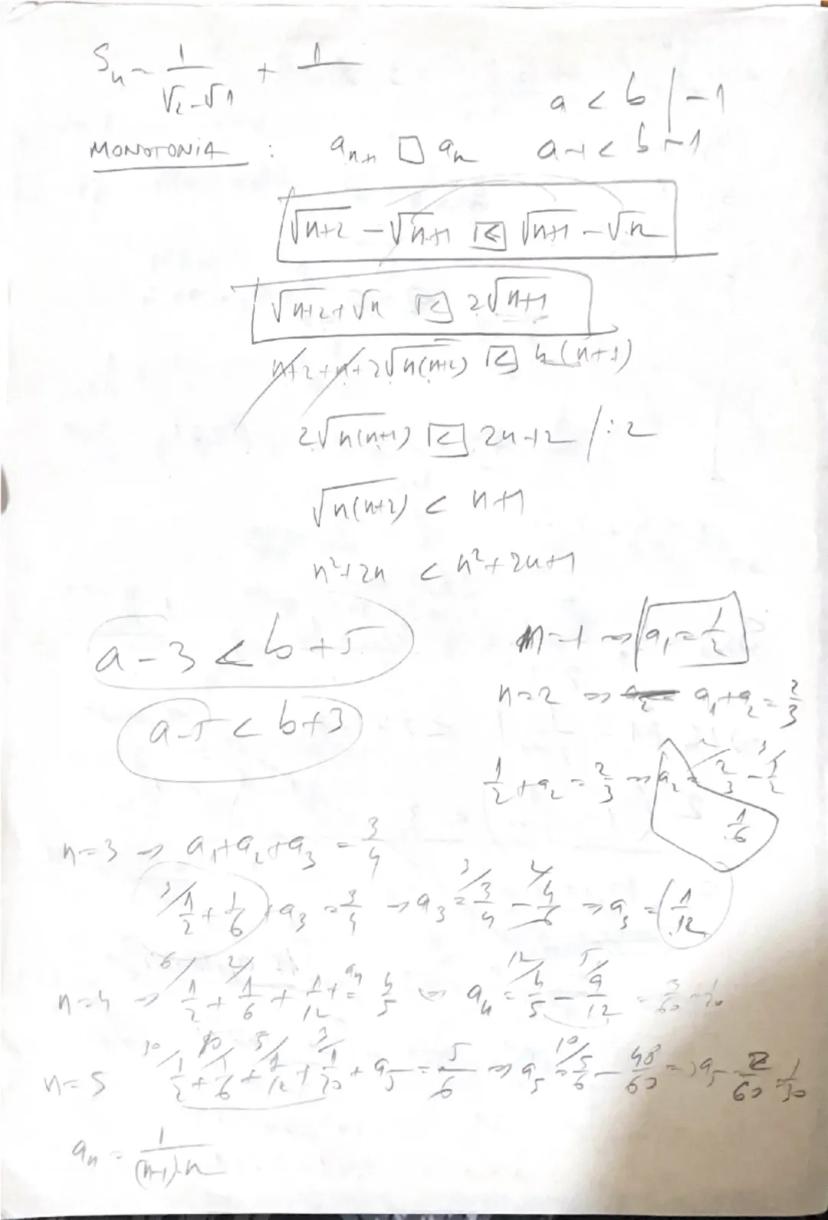 Sn = 1/(√2-√1) + 1/
a < b | -1
MONOTONIA : aₙ₊₁ □ aₙ a-1 < b-1
√n+2 - √n+1 < √n+1 - √n
√n+2 + √n < 2√n+1
n+2+n+2√n(n+2) < 4(n+1)
2√n(n+2) < 2n+2 / :2
√n(n+2) < n+1
n²+2n < n²+2n+1
a-3 < b+5
a-5 < b+3
n=1 ⇒ a₁ = 1/2
n=2 ⇒ a₁+a₂ = 2/3
1/2 + a₂ = 2/3 ⇒ a₂ = 2/3 - 1/2
1/6
n=3 ⇒ a₁+a₂+a₃ = 3/4
1/2 + 1/6 + a₃ = 3/4 → a₃ = 3/4 - 4/6 ⇒ a₃ = 1/12
n=4 ⇒ 1/2 + 1/6 + 1/12 + a₄ = 4/5 ⇒ a₄ = 4/5 - 9/12 = 3/60
n=5 1/2 + 1/6 + 1/12 + 1/20 + a₅ = 5/6 ⇒ a₅ = 5/6 - 48/60 ⇒ a₅ = 2/60 1/30
aₙ = 1/((n+1)·n)